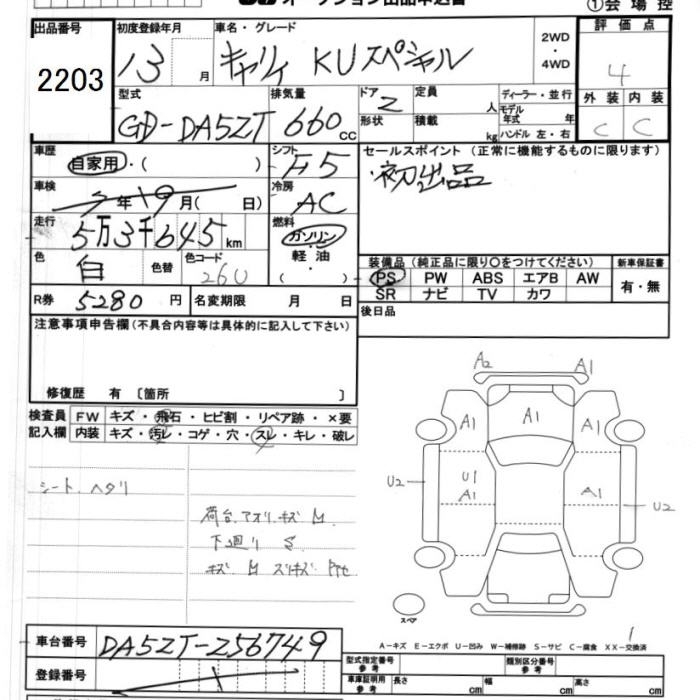 オークション出品申込書
①会場控
出品番号 2203
初度登録年月 13 月
車名・グレード キャリィ KUスペシャル
2WD・4WD
評価点 4
外装 C 内装 C
型式 GD-DA52T
排気量 660 CC
ドア 2 形状
定員 人 積載 kg
ディーラー・並行
モデル年式 年式
ハンドル 左・右
車歴 自家用・( )
シフト F5
セールスポイント(正常に機能するものに限ります)
初出品
車検 年 19月( 日)
冷房 AC
走行 5万3千645km
燃料 ガソリン・軽油・( )
色 白 色替 色コード 26U
装備品(純正品に限り○をつけてください)
新車保証書
PS PW ABS エアB AW
SR ナビ TV カワ
有・無
R券 5280円 名変期限 月 日
後日品
注意事項申告欄(不具合内容等は具体的に記入して下さい)
修復歴 有 〔箇所 〕
検査員記入欄
FW キズ・飛石・ヒビ割・リペア跡・×要
内装 キズ・汚レ・コゲ・穴・スレ・キレ・破レ
シート ヘタリ
荷台.アオリ.キズ M
下廻り S
キズ M スリキズ
A2 A1
A1 A1 A1
U2 U1 A1 A1 U2
スペア
A-キズ E-エクボ U-凹み W-補修跡 S-サビ C-腐食 XX-交換済
1
車台番号 DA52T-256749
型式指定番号 参考
類別区分番号 参考
登録番号
車庫証明用 参考 長さ cm 幅 cm 高さ cm